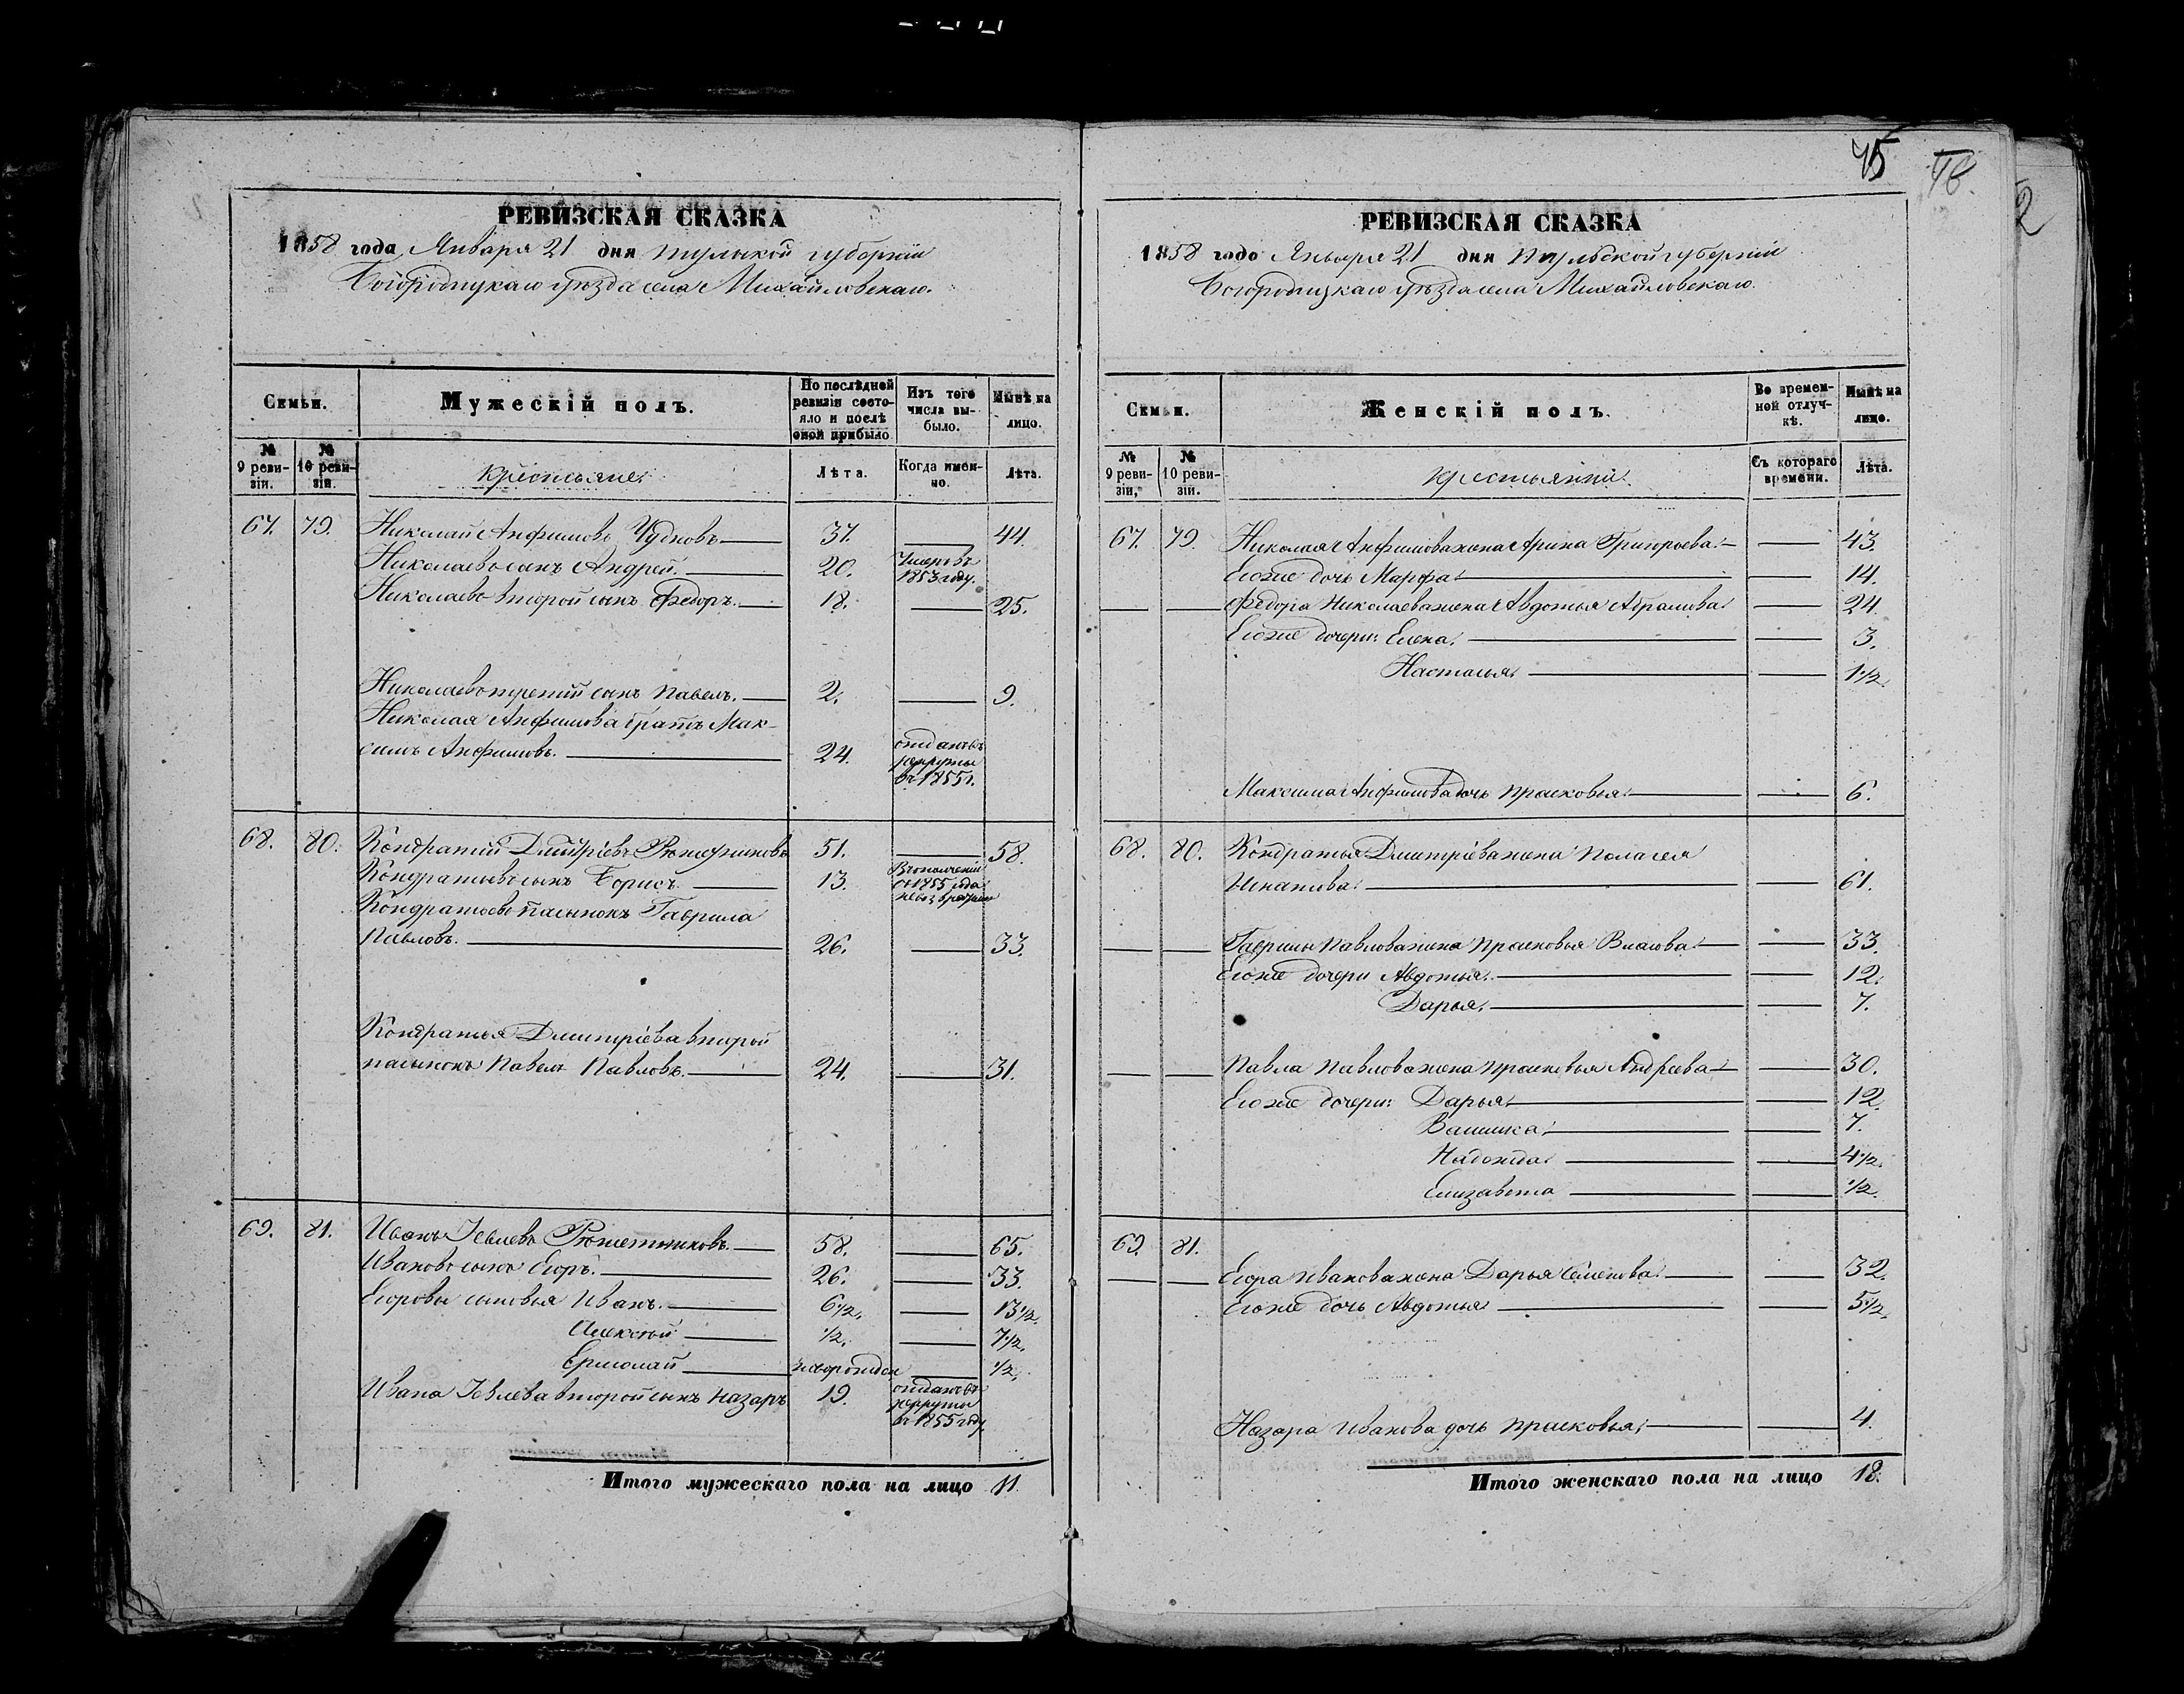 РЕВИЗСКАЯ СКАЗКА
1858 года Января 21 дня Тульской губернии
Богородицкаго уѣзда села Михайловскаго.
Семьи.
Мужескій полъ.
По послѣдней ревизіи состояло и послѣ оной прибыло
Изъ того числа выбыло.
Нынѣ на лицо.
№ 9 ревизіи.
№ 10 ревизіи.
Крестьяне.
Лѣта.
Когда именно.
Лѣта.
67. 79. Николай Анфимовъ Чудновъ 37. 44.
Николаевъ сынъ Андрей. 20. Умеръ въ 1853 году.
Николаевъ второй сынъ Федоръ. 18. 25.
Николаевъ третій сынъ Павелъ. 2. 9.
Николая Анфимова братъ Мак-
симъ Анфимовъ. 24. отданъ въ рекруты въ 1855 г.
68. 80. Кондратій Дмитріевъ 51. 58.
Кондратьевъ сынъ Борисъ. 13. Въ ополченіи съ 1855 года
Кондратьевъ пасынокъ Гаврила
Павловъ. 26. 33.
Кондратья Дмитріева второй
пасынокъ Павелъ Павловъ. 24. 31.
69. 81. Иванъ Іевлевъ Рѣшетниковъ. 58. 65.
Ивановъ сынъ Егоръ. 26. 33.
Егоровы сыновья Иванъ. 6 1/2. 13 1/2.
Алексѣй 1/2. 7 1/2.
Ермолай новорожден 1/2.
Ивана Іевлева второй сынъ Назаръ 19. отданъ въ рекруты въ 1855 году
Итого мужескаго пола на лицо 11
45
46.
2
РЕВИЗСКАЯ СКАЗКА
1858 года Января 21 дня Тульской губерніи
Богородицкаго уѣзда села Михайловскаго.
Семьи.
Женскій полъ.
Во временной отлучкѣ.
Нынѣ на лицо.
№ 9 ревизіи,
№ 10 ревизіи.
Крестьянки.
Съ котораго времени.
Лѣта.
67. 79. Николая Анфимова жена Арина Григорьева. 43.
Егоже дочь Марфа 14.
Федора Николаева жена Авдотья Абрамова 24.
Егоже дочери: Елена. 3.
Настасья 1 1/2.
Максима Анфимова дочь Прасковья 6.
68. 80. Кондратья Дмитріева жена Пелагея
Игнатова 61.
Гаврилы Павлова жена Прасковья Власова 33.
Егоже дочери Авдотья. 12.
Дарья. 7.
Павла Павлова жена Прасковья Андреева 30.
Егоже дочери: Дарья 12.
7.
Надежда 4 1/2.
Елизавета 1/2.
69. 81.
Егора Иванова жена Дарья Семенова 32.
Егоже дочь Авдотья 5 1/2.
Назара Иванова дочь Прасковья, 4.
Итого женскаго пола на лицо 18.